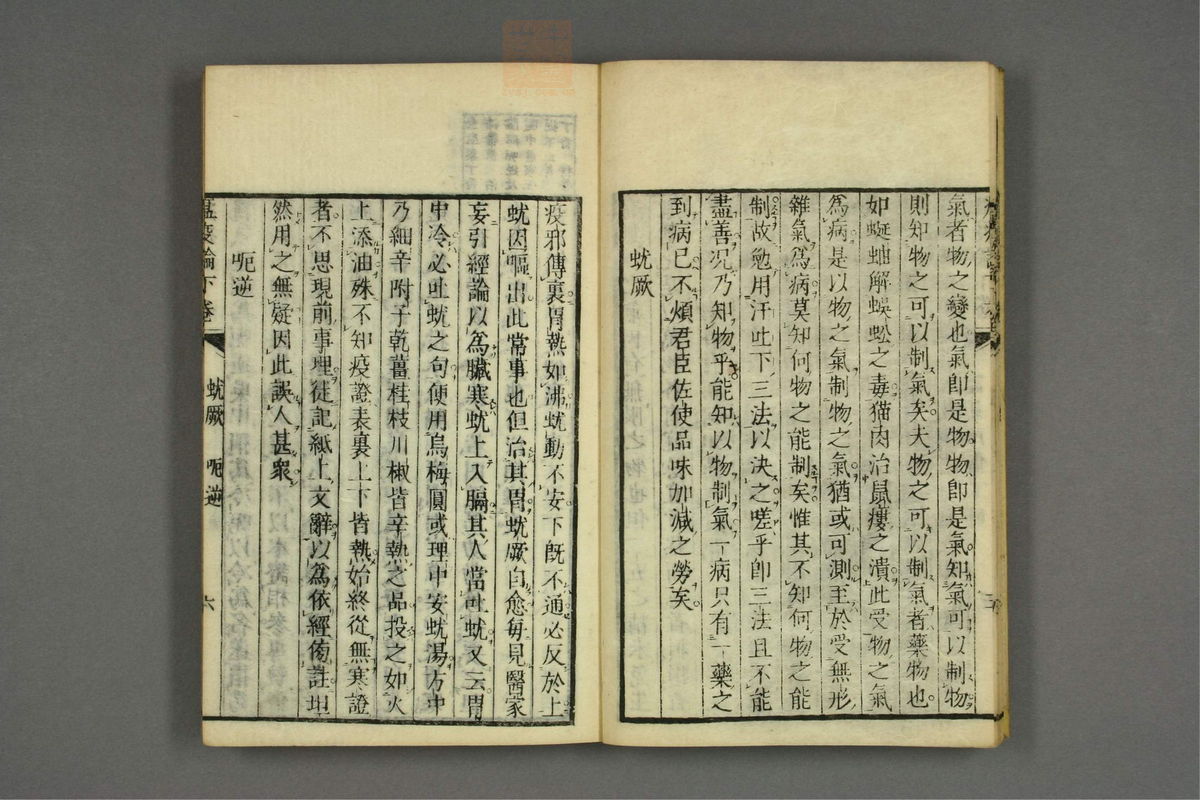 氣者物之變也氣卽是物物卽是氣知氣可以制物
則知物之可以制氣矣夫物之可以制氣者藥物也
如蜒蚰解蜈蚣之毒猫肉治鼠瘻之潰此受物之氣
為病是以物之氣制物之氣猶或可測至於受無形
雜氣為病莫知何物之能制矣惟其不知何物之能
制故勉用汗吐下三法以決之嗟乎卽三法且不能
盡善况乃知物乎能知以物制氣一病只有一藥之
到病已不煩君臣佐使品味加減之勞矣
蚘厥
疫邪傳裏胃熱如沸蚘動不安下旣不通必反於上
蚘因嘔出此常事也但治其胃蚘厥自愈每見醫家
妄引經論以為臟寒蚘上入膈其人當吐蚘又云胃
中冷必吐蚘之句便用烏梅圓或理中安蚘湯方中
乃細辛附子乾薑桂枝川椒皆辛熱之品投之如火
上添油殊不知疫證表裏上下皆熱始終從無寒證
者不思現前事理徒記紙上文辭以為依經傍註坦
然用之無疑因此誤人甚衆
呃逆
溫疫論下卷
蚘厥 呃逆
六